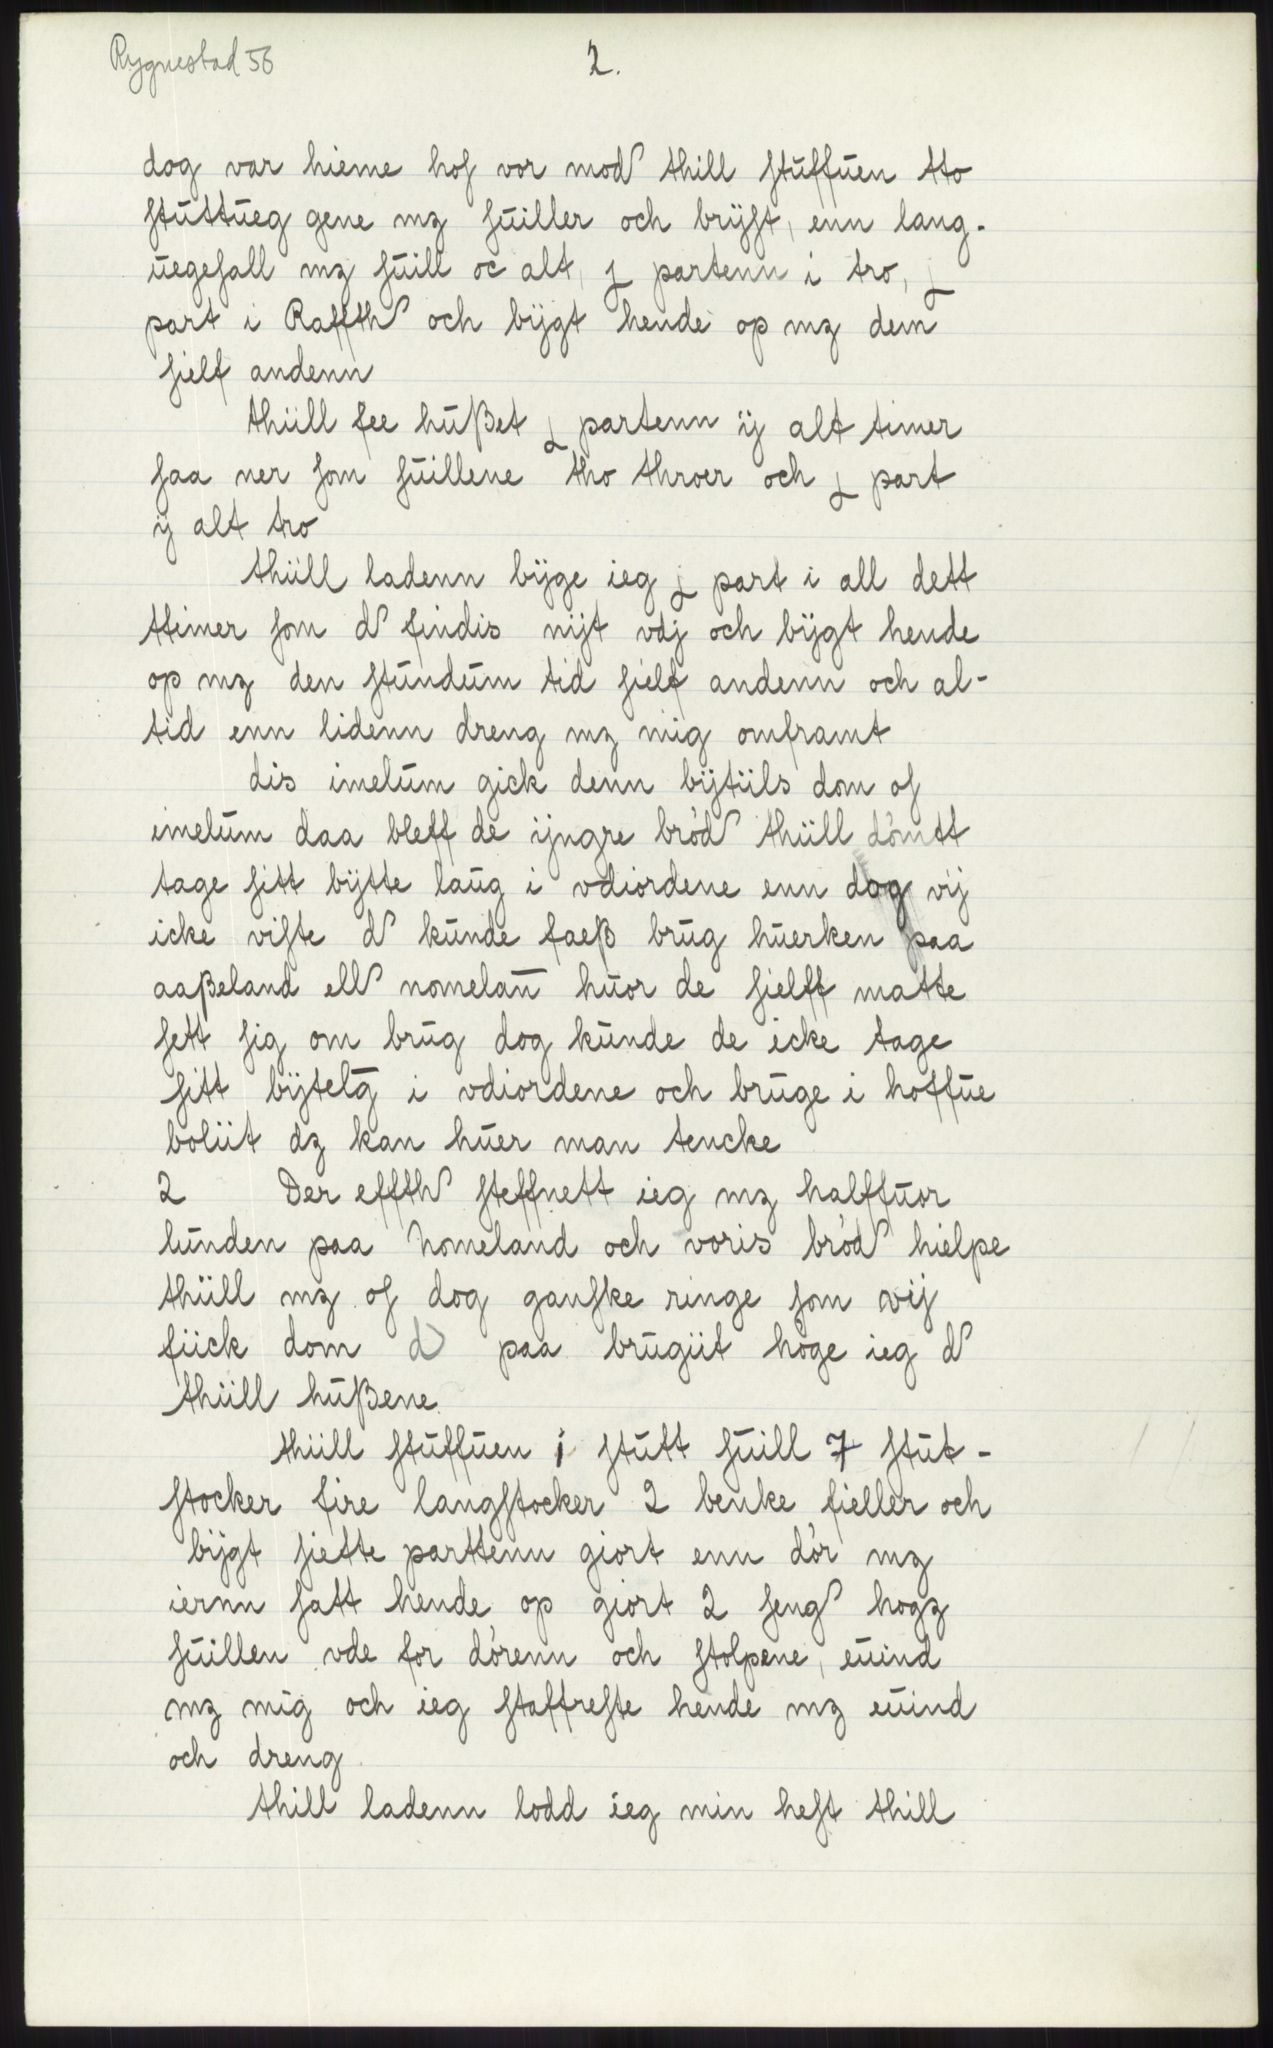 Rygnestad 56
2.
dog var hieme hos vor mod thill stuffuen tto
stuttueg gene mz suiller och brijst, enn lang-
uegesall mz suill oc alt, j partenn i tro, j
part i Raffth och bijgt hende op mz dem
sielf andenn
thiill fee hußet j partenn ij alt timer
saa ner som suillene tho throer och j part
ij alt tro
thiill ladenn bijge ieg j part i all dett
ttimer som d findis nijt vdj och bijgt hende
op mz den stundum tid sielf andenn och al-
tid enn lidenn dreng mz mig omframt
dis imelum gick denn bijtiils dom of
imelum daa bleff de ijngre bród thiill dómtt
tage sitt bijtte laug i vdiordene enn dog vij
icke viste d kunde faeß brug huerken paa
aaßeland ell nomelan̄ huor de sielff matte
sett sig om brug dog kunde de icke tage
sitt bijtelg̅ i vdiordene och bruge i hoffue
boliit dz kan huer man tencke
2 Der effth steffnett ieg mz halffuor
lunden paa homeland och voris bród hielpe
thiill mz of dog ganske ringe som vij
fiick dom d paa brugiit hòge ieg d
thiill hußene
thiill stuffuen i stutt suill 7 stut-
stocker fire langstocker 2 benke fieller och
bijgt siette parttenn giort enn dór mz
iernn satt hende op giort 2 seng hogz
suillen vde for dórenn och stolpene, euind
mz mig och ieg staffreste hende mz euind
och dreng
thill ladenn lodd ieg min hest thill